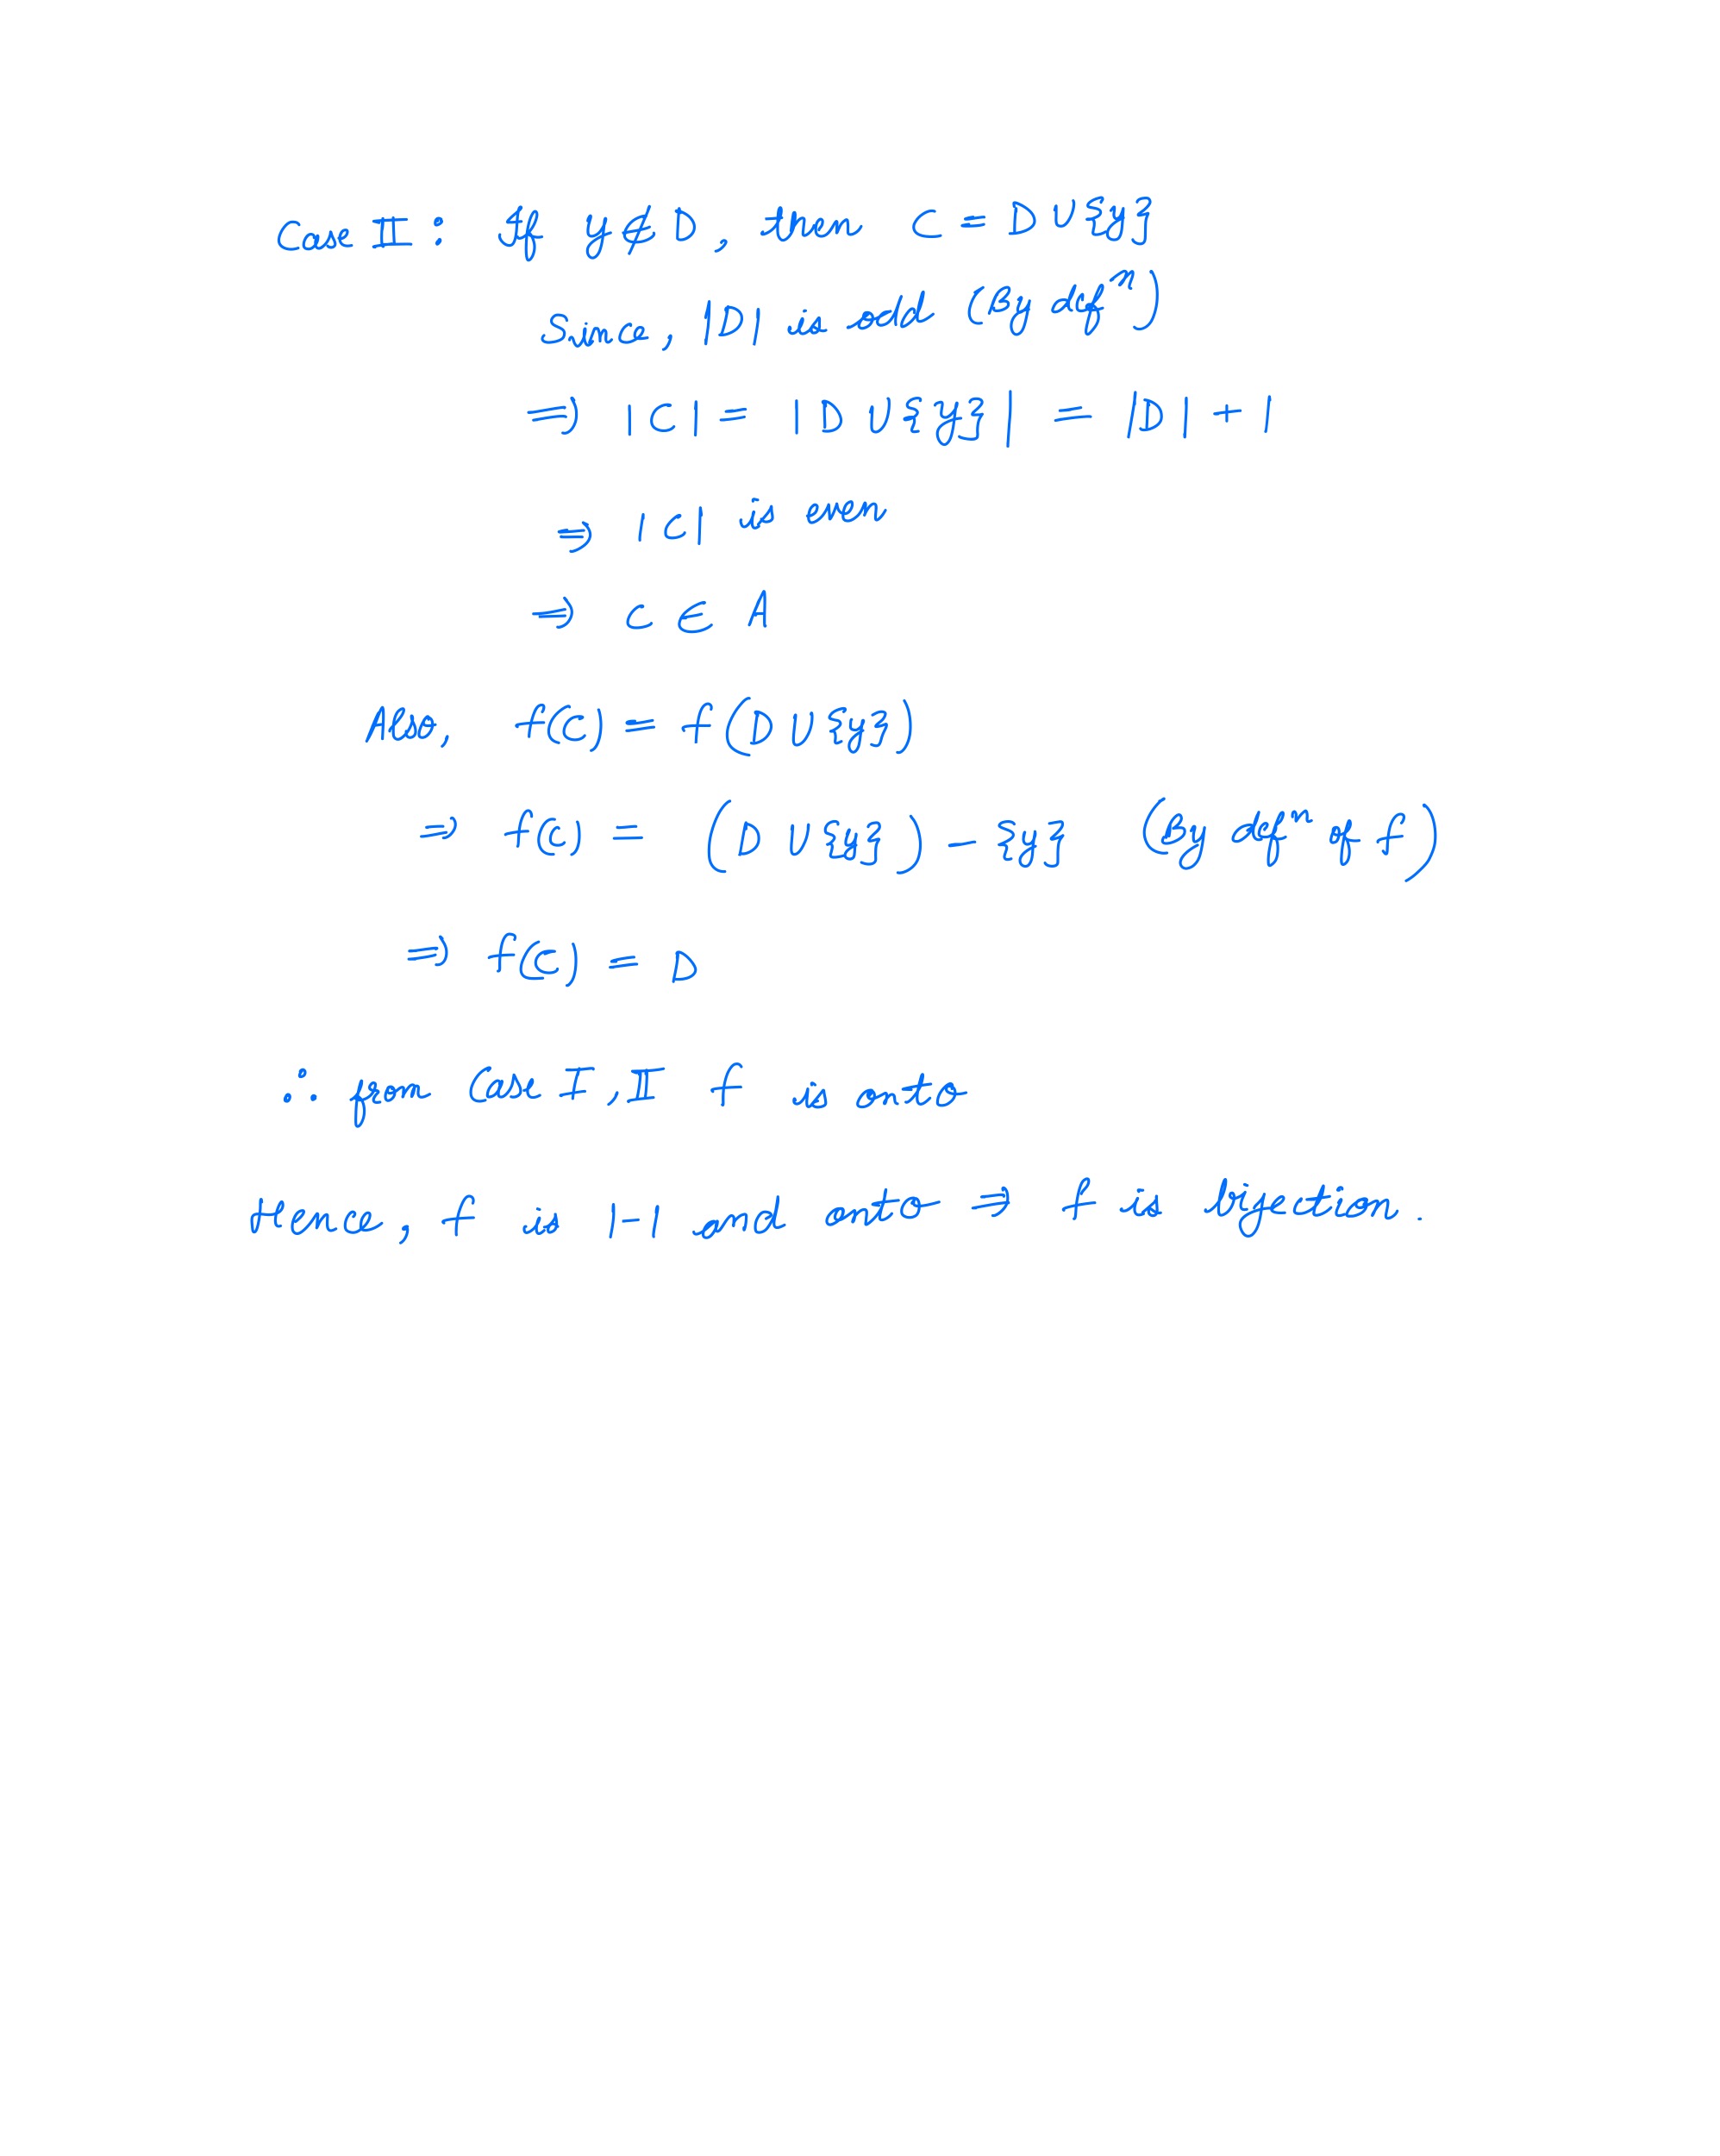 Case II : If y ∉ D, then C = D ∪ {y}
Since, |D| is odd (By defⁿ)
⇒ |C| = |D ∪ {y}| = |D| + 1
⇒ |C| is even
⇒ C ∈ A
Also, f(C) = f(D ∪ {y})
⇒ f(C) = (D ∪ {y}) - {y} (By defⁿ of f)
⇒ f(C) = D
∴ from Case I, II f is onto
Hence, f is 1-1 and onto ⇒ f is bijection.